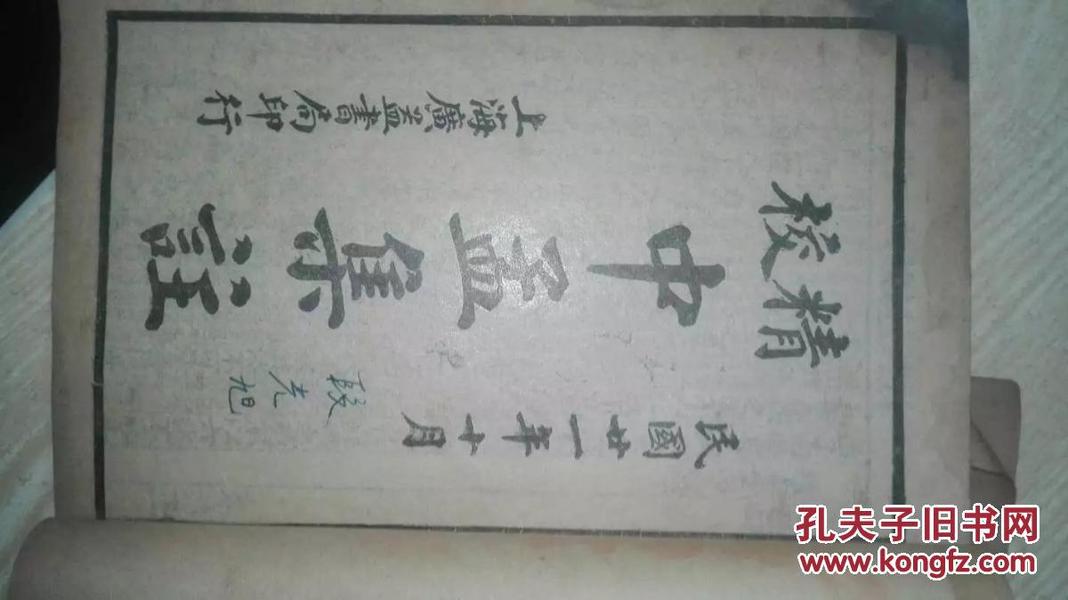 精校
民國廿一年十月
中孟集註
上海廣益書局印行
孔夫子旧书网
www.kongfz.com